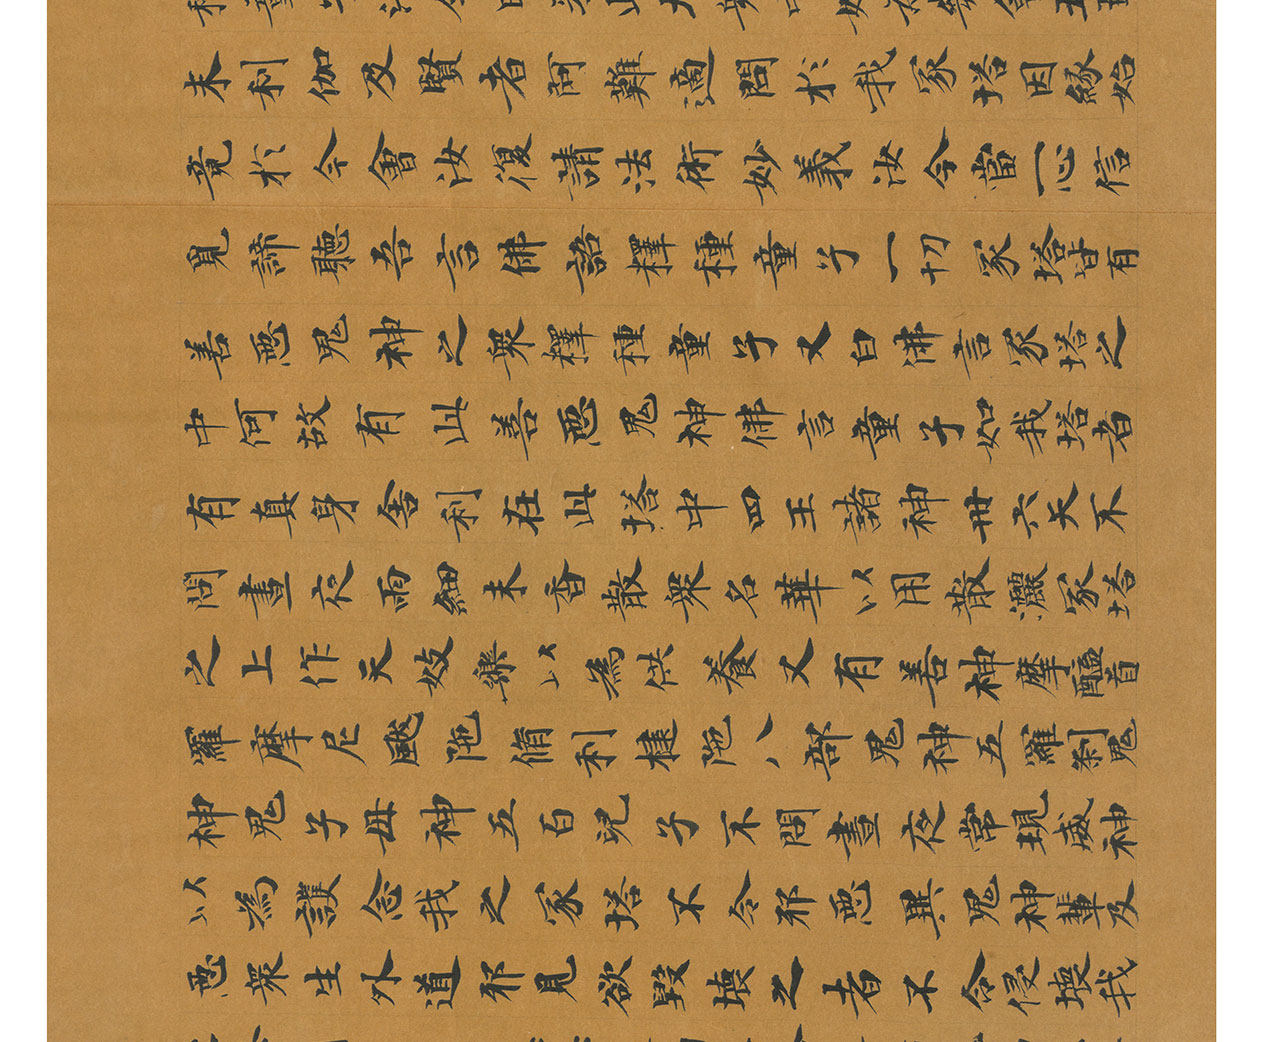 末利伽及賢者阿難適問於我冢塔因緣始
竟於今會汝復請法術妙義汝今當一心信
見諦聽吾言佛語釋種童子一切冢塔皆有
善惡鬼神之眾釋種童子又白佛言冢塔之
中何故有此善惡鬼神佛言童子如我塔者
有真身舍利在此塔中四王諸神卅六天不
問晝夜雨細末香散眾名華以用散灑冢塔
之上作天妓樂以為供養又有善神摩醯首
羅摩尼颰陀脩利揵陀〻部鬼神五羅剎鬼
神鬼子母神五百兒子不問晝夜常現威神
以為護念我之冢塔不令邪惡異鬼神輩及
惡眾生外道邪見欲毀壞之者不令侵壞我